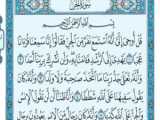 سُورَةُ الجِنّ
بِسْمِ اللَّهِ الرَّحْمَٰنِ الرَّحِيمِ
قُلْ أُوحِيَ إِلَيَّ أَنَّهُ اسْتَمَعَ نَفَرٌ مِّنَ الْجِنِّ فَقَالُوا إِنَّا سَمِعْنَا قُرْءَانًا
عَجَبًا ١ يَهْدِي إِلَى الرُّشْدِ فَـَٔامَنَّا بِهِ وَلَن نُّشْرِكَ بِرَبِّنَا أَحَدًا ٢
وَأَنَّهُ تَعَالَىٰ جَدُّ رَبِّنَا مَا اتَّخَذَ صَاحِبَةً وَلَا وَلَدًا ٣ وَأَنَّهُ كَانَ
يَقُولُ سَفِيهُنَا عَلَى اللَّهِ شَطَطًا ٤ وَأَنَّا ظَنَنَّا أَن لَّن تَقُولَ الْإِنسُ